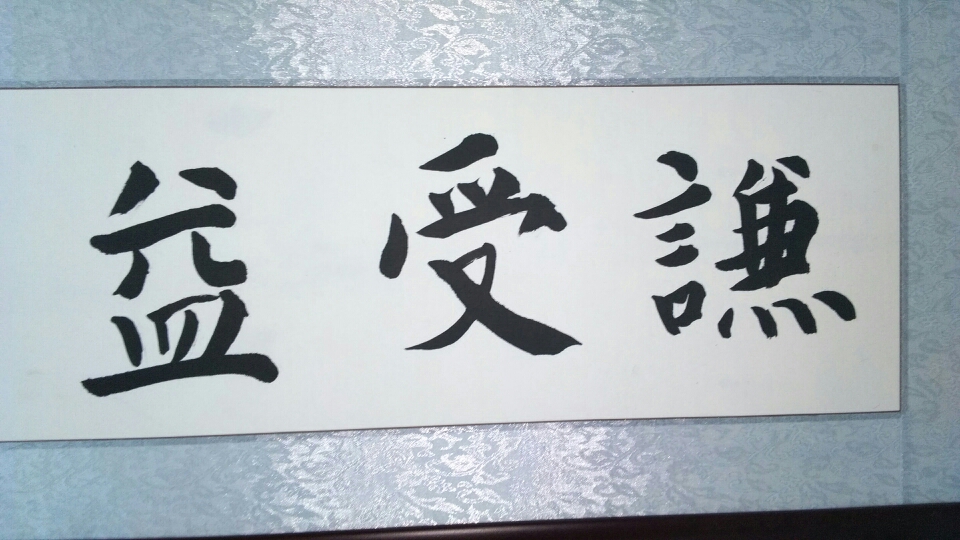 謙受益